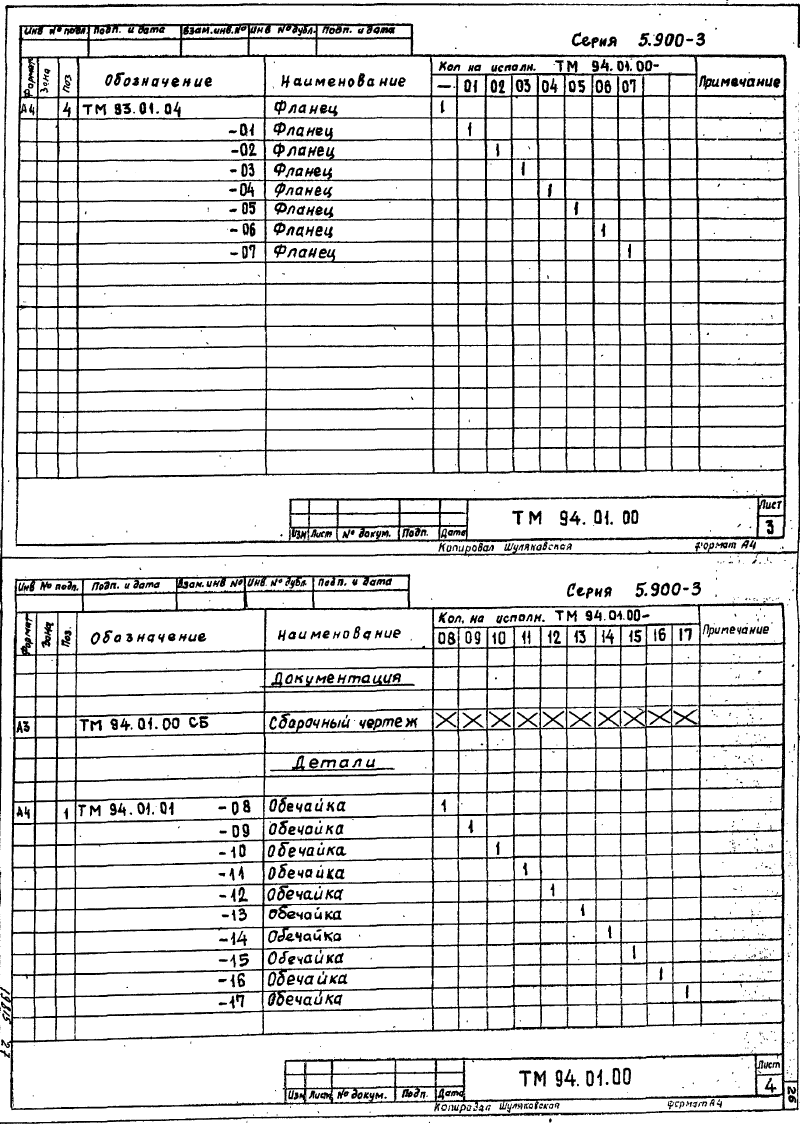 Инв № подл. Подп. и дата Взам.инв.№ Инв № дубл. Подп. и дата
Серия 5.900-3
Формат Зона Поз Обозначение Наименование Кол на исполн. ТМ 94.01.00- Примечание
— 01 02 03 04 05 06 07
А4 4 ТМ 93.01.04 Фланец 1
-01 Фланец 1
-02 Фланец 1
-03 Фланец 1
-04 Фланец 1
-05 Фланец 1
-06 Фланец 1
-07 Фланец 1
ТМ 94.01.00 Лист 3
Изм Лист № докум. Подп. Дата
Копировал Шуляковская формат А4
Инв № подл. Подп. и дата Взам.инв № Инв № дубл. Подп. и дата
Серия 5.900-3
Формат Зона Поз. Обозначение Наименование Кол. на исполн. ТМ 94.01.00- Примечание
08 09 10 11 12 13 14 15 16 17
Документация
А3 ТМ 94.01.00 СБ Сборочный чертеж X X X X X X X X X X
Детали
А4 1 ТМ 94.01.01 -08 Обечайка 1
-09 Обечайка 1
-10 Обечайка 1
-11 Обечайка 1
-12 Обечайка 1
-13 Обечайка 1
-14 Обечайка 1
-15 Обечайка 1
-16 Обечайка 1
-17 Обечайка 1
19815 27
ТМ 94.01.00 Лист 4
Изм Лист № докум. Подп. Дата
Копировал Шуляковская формат А4
26